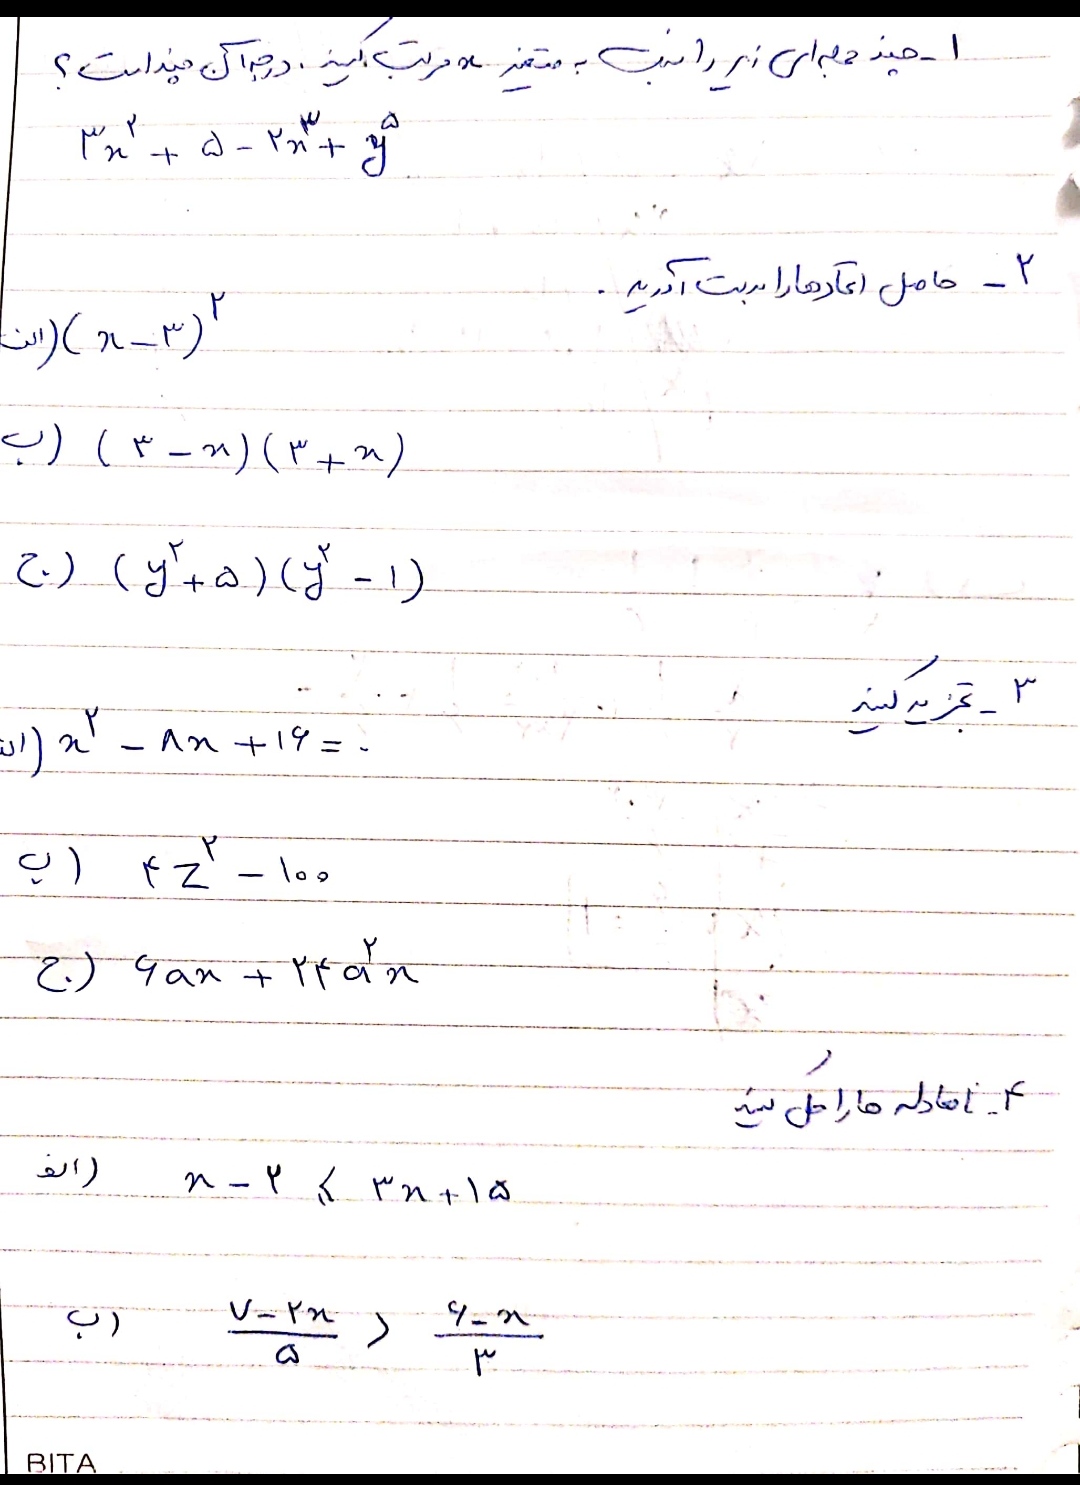 ۱- چند جمله‌ای زیر را نسبت به متغیر x مرتب کنید. درجه آن چند است؟
۳x^۲ + ۵ - ۲x^۳ + y^۵
۲- حاصل اتحادها را بدست آورید.
الف) (x - ۳)^۲
ب) (۳ - x)(۳ + x)
ج) (y^۲ + ۵)(y^۲ - ۱)
۳- تجزیه کنید
الف) x^۲ - ۸x + ۱۶ = ۰
ب) ۴z^۲ - ۱۰۰
ج) ۶ax + ۲۴a^۲x
۴- نامعادله ها را حل کنید
الف) x - ۲ ⩽ ۳x + ۱۵
ب) (۷ - ۲x)/۵ > (۶ - x)/۳
BITA